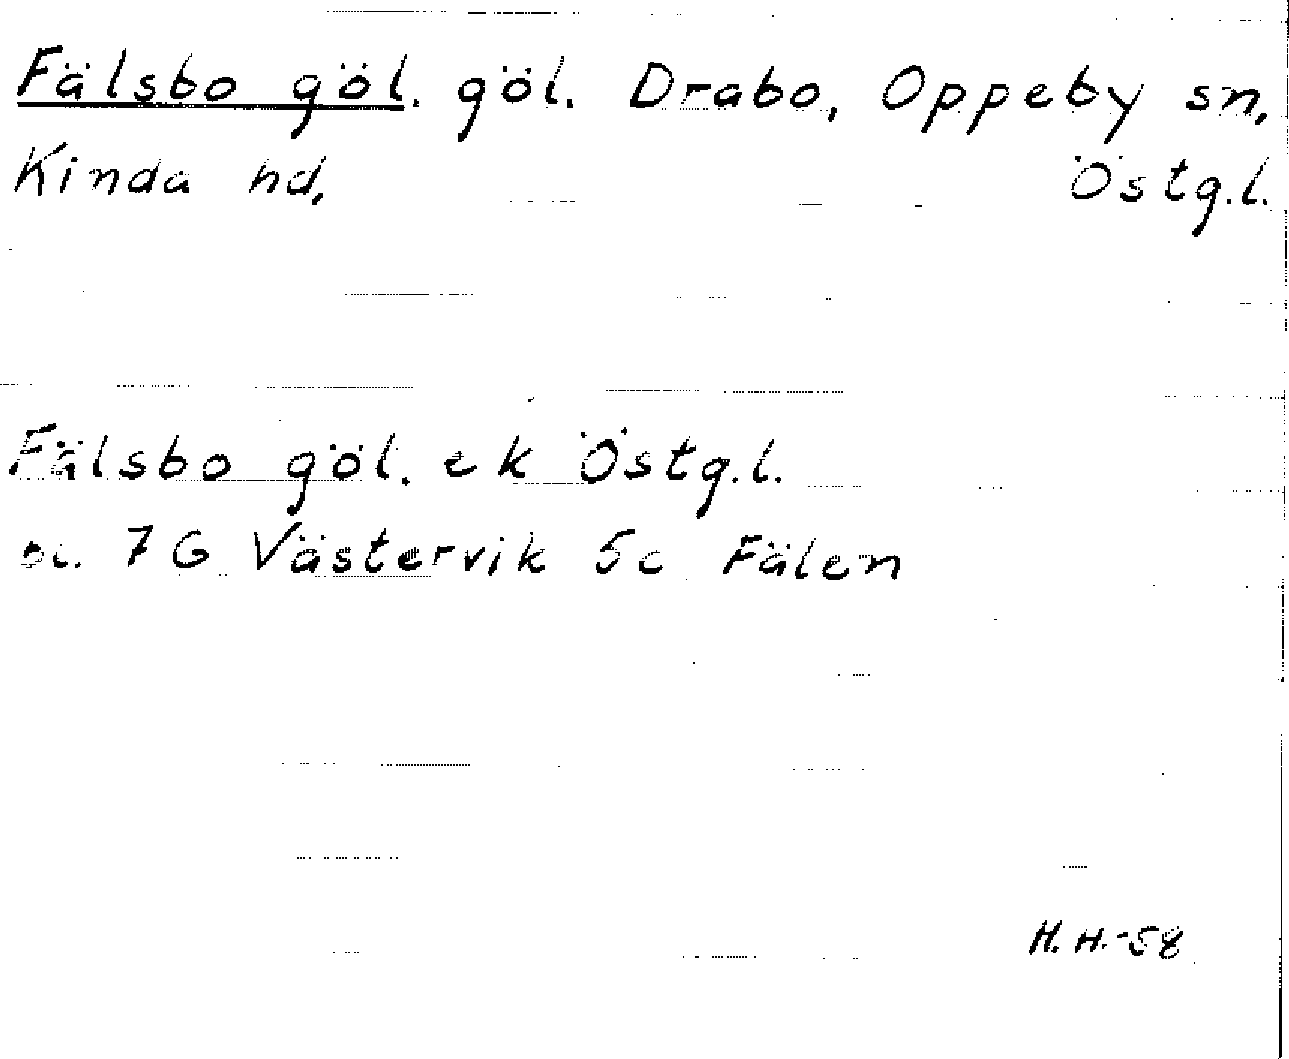 Fälsbo göl. göl. Drabo, Oppeby sn,
Kinda hd, Östg.l.
Fälsbo göl. ek Östg.l.
bl. 7G Västervik 5c Fälen
H.H.-58